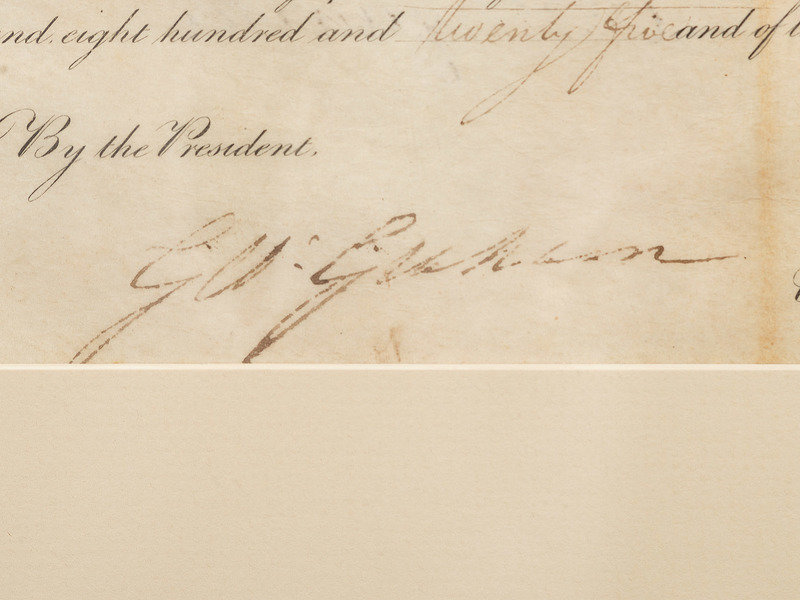 nd eight hundred and twenty five and of
By the President.